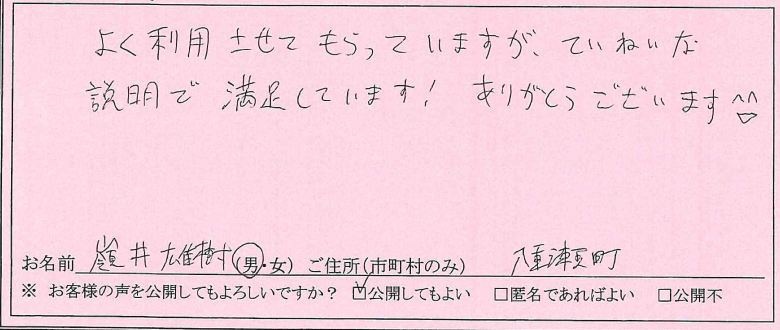 よく利用させてもらっていますが、ていねいな
説明で 満足しています! ありがとうございます^^
お名前 嶺井 雄樹 (男・女) ご住所(市町村のみ) 八重瀬町
※ お客様の声を公開してもよろしいですか? ☑公開してもよい □匿名であればよい □公開不